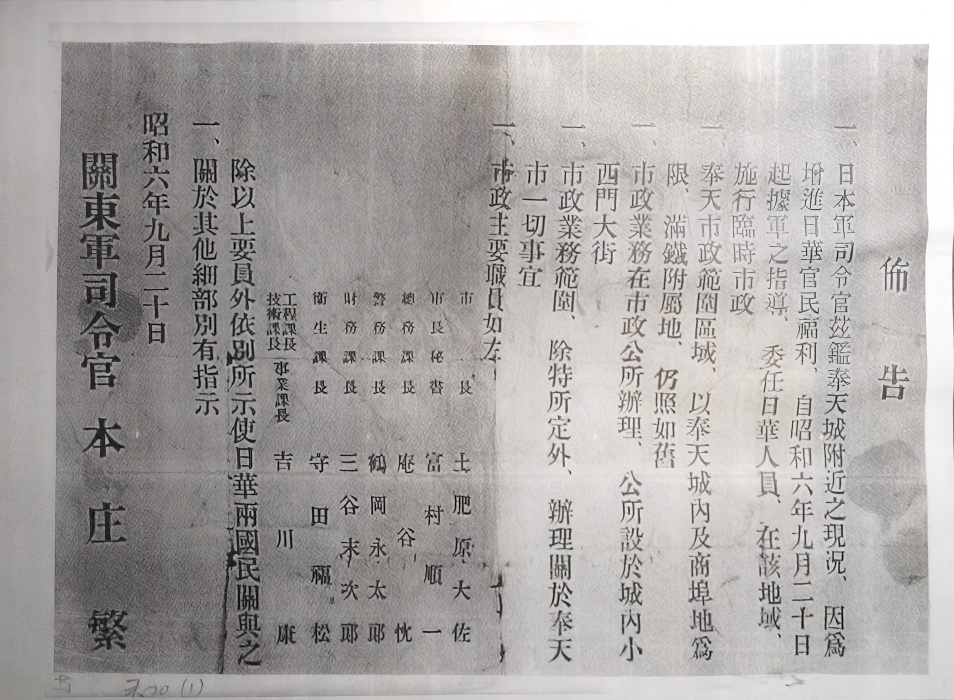 佈告
一、日本軍司令官茲鑑奉天城附近之現況、因爲
增進日華官民福利、自昭和六年九月二十日
起據軍之指導、委任日華人員、在該地域、
施行臨時市政
一、奉天市政範圍區域、以奉天城內及商埠地爲
限、滿鐵附屬地、仍照如舊
一、市政業務在市政公所辦理、公所設於城內小
西門大街
一、市政業務範圍 除特所定外、辦理關於奉天
市一切事宜
一、市政主要職員如左、
市長 土肥原大佐
市長秘書 富村順一
總務課長 庵谷忱
警務課長 鶴岡永太郎
財務課長 三谷末次郎
衞生課長 守田福松
工程課長 技術課長 事業課長 吉川康
除以上要員外依別所示使日華兩國民關與之
一、關於其他細部別有指示
昭和六年九月二十日
關東軍司令官 本庄繁
(1)